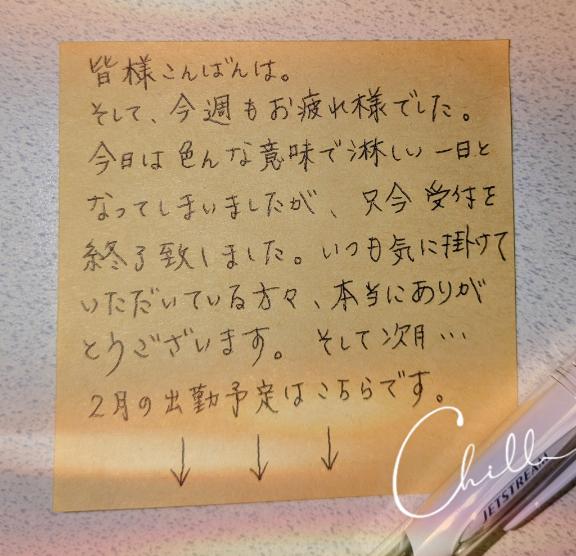 皆様こんばんは。
そして、今週もお疲れ様でした。
今日は色んな意味で淋しい一日と
なってしまいましたが、只今受付を
終了致しました。いつも気に掛けて
いただいている方々、本当にありが
とうございます。そして次月…
2月の出勤予定はこちらです。
↓ ↓ ↓
Chill
JETSTREAM